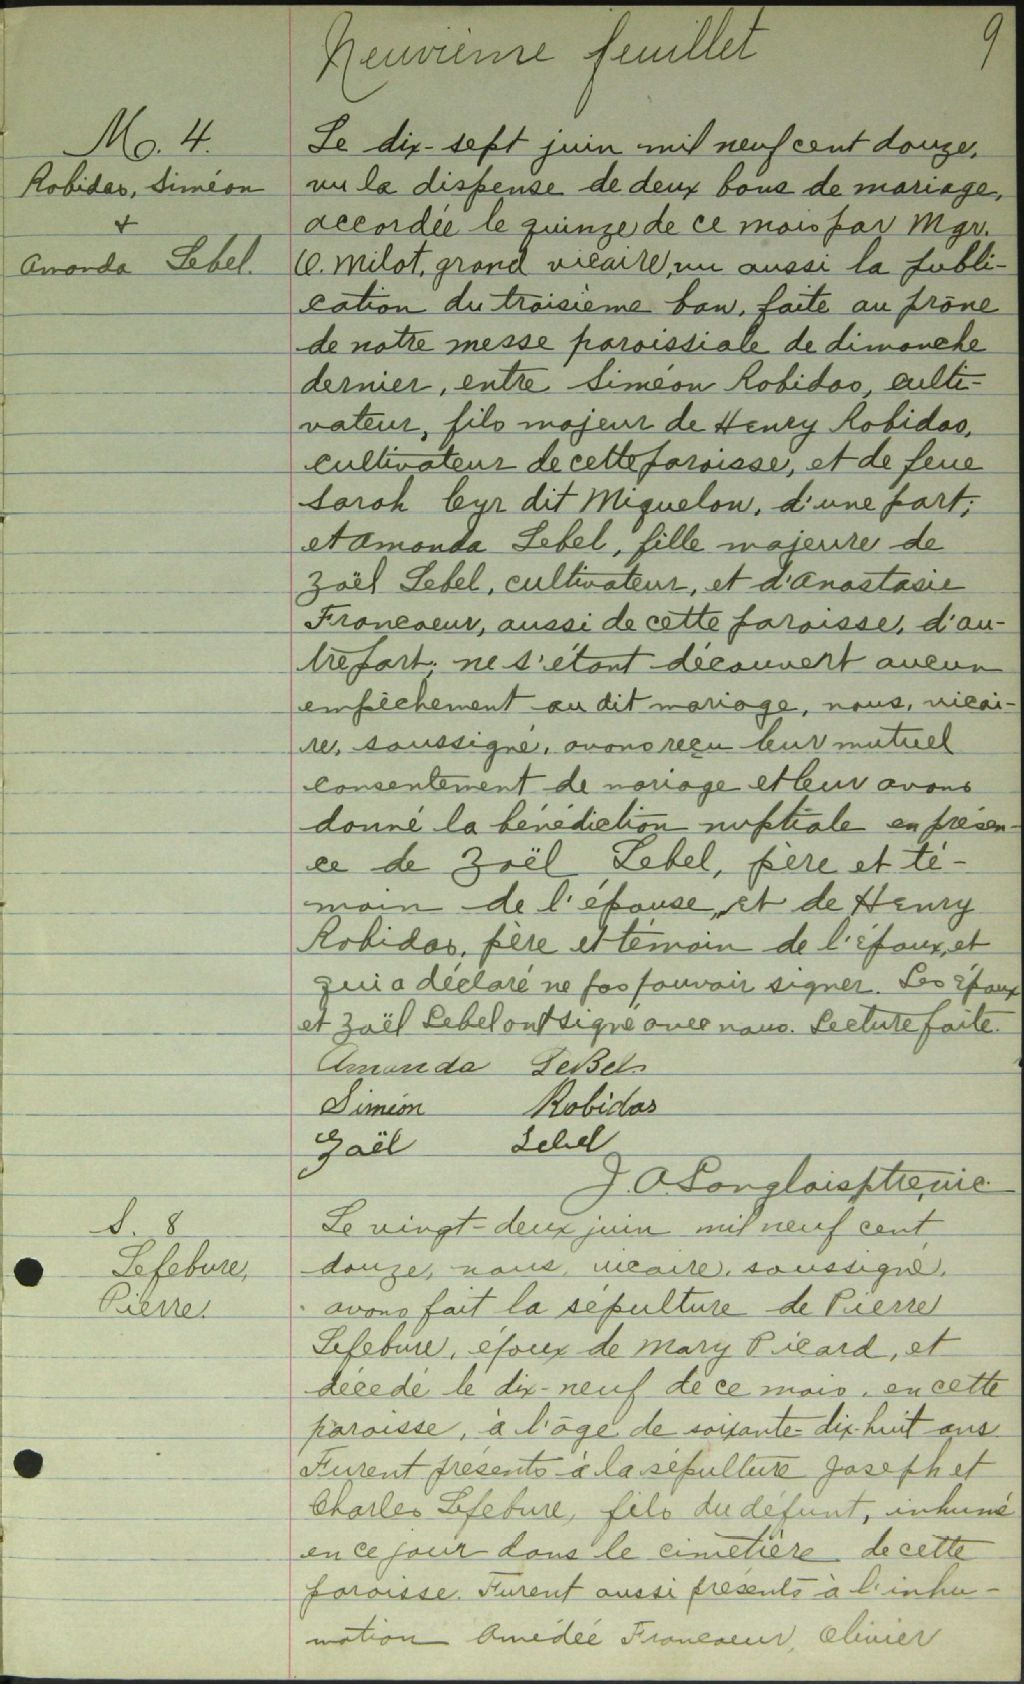 Neuvième feuillet
9
M. 4.
Robidas, Siméon
&
Amanda Lebel.
Le dix-sept juin mil neuf cent douze,
vu la dispense de deux bans de mariage,
accordée le quinze de ce mois par Mgr.
O. Milot, grand vicaire, vu aussi la publi-
cation du troisième ban, faite au prône
de notre messe paroissiale de dimanche
dernier, entre Siméon Robidas, culti-
vateur, fils majeur de Henry Robidas,
cultivateur de cette paroisse, et de feue
Sarah Cyr dit Miquelon, d'une part;
et Amanda Lebel, fille majeure de
Zoël Lebel, cultivateur, et d'Anastasie
Francoeur, aussi de cette paroisse, d'au-
tre part; ne s'étant découvert aucun
empêchement au dit mariage, nous, vicai-
re, soussigné, avons reçu leur mutuel
consentement de mariage et leur avons
donné la bénédiction nuptiale en présen-
ce de Zoël Lebel, père et té-
moin de l'épouse, et de Henry
Robidas, père et témoin de l'époux, et
qui a déclaré ne pas pouvoir signer. Les époux
et Zoël Lebel ont signé avec nous. Lecture faite.
Amanda LeBel
Siméon Robidas
Zoël Lebel
J. A. Langlois ptre, vic.
S. 8
Lefebvre,
Pierre.
Le vingt-deux juin mil neuf cent
douze, nous, vicaire, soussigné,
avons fait la sépulture de Pierre
Lefebvre, époux de Mary Picard, et
décédé le dix-neuf de ce mois, en cette
paroisse, à l'âge de soixante-dix-huit ans.
Furent présents à la sépulture Joseph et
Charles Lefebvre, fils du défunt, inhumé
en ce jour dans le cimetière de cette
paroisse. Furent aussi présents à l'inhu-
mation Amédée Francoeur, Olivier